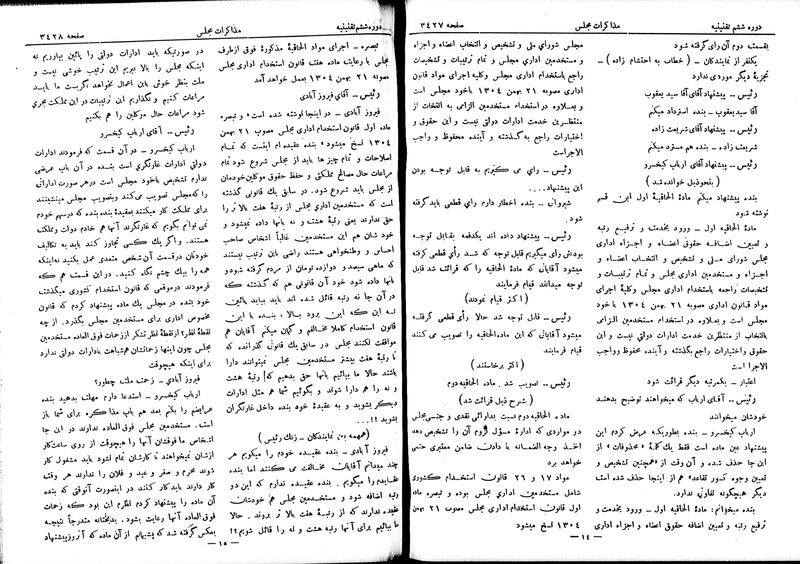 دوره ششم تقنینیه
مذاکرات مجلس
صفحه ۳۴۲۷
بقسمت دوم آن رأی گرفته شود
یکنفر از نمایندگان - ( خطاب به احتشام زاده ) -
تجزیهٔ دیگر موردی ندارد
رئیس - پیشنهاد آقای آقا سید یعقوب
آقا سید یعقوب - بنده استرداد میکنم
رئیس - پیشنهاد آقای شریعت زاده
شریعت زاده - بنده هم مسترد میکنم
رئیس - پیشنهاد آقای ارباب کیخسرو
( بنحو ذیل خوانده شد )
بنده پیشنهاد میکنم مادهٔ الحاقیهٔ اول این قسم
نوشته شود
مادهٔ الحاقیه اول - ورود بخدمت و ترفیع رتبه
و تعیین اضافه حقوق اعضاء و اجزاء اداری
مجلس شورای ملی و تشخیص و انتخاب اعضاء و
اجزاء و مستخدمین اداری مجلس و تمام ترتیبات و
تشخیصات راجعه باستخدام اداری مجلس وکلیهٔ اجرای
مواد قانون اداری مصوبه ۲۱ بهمن ۱۳۰۴ با خود
مجلس است و بعلاوه در استخدام مستخدمین الزامی
بانتخاب از منتظرین خدمت ادارات دولتی نیست و این
حقوق و اختیارات راجع بگذشته و آینده محفوظ و واجب
الاجرا است
اعتبار - یکمرتبه دیگر قرائت شود
رئیس - آقای ارباب که میخواهند توضیح بدهند
خودشان میخوانند
ارباب کیخسرو - بنده بطوریکه عرض کردم این
پیشنهاد عین ماده است فقط یک کلمهٔ «محذوفات» از
این جا حذف شده و آن وقت از «همچنین تشخیص و
تعیین وجوه کسور تقاعد» هم از اینجا حذف شده است
دیگر هیچگونه تفاوتی ندارد.
بنده میخوانم: مادهٔ الحاقیه اول - ورود بخدمت و
ترفیع رتبه و تعیین اضافه حقوق اعضاء و اجزاء اداری
مجلس شورای ملی و تشخیص و انتخاب اعضاء و اجزاء
و مستخدمین اداری مجلس و تمام ترتیبات و تشخیصات
راجع باستخدام اداری مجلس وکلیه اجرای مواد قانون
اداری مصوبه ۲۱ بهمن ۱۳۰۴ با خود مجلس است
و بعلاوه در استخدام مستخدمین الزامی به انتخاب از
منتظرین خدمت ادارات دولتی نیست و این حقوق و
اختیارات راجع به گذشته و آینده محفوظ و واجب
الاجراست
رئیس - رأی می گیریم به قابل توجه بودن
این پیشنهاد....
شیروانی - بنده اخطار دارم رأی قطعی باید گرفته
شود.
رئیس - پیشنهاد داده اند یکدفعه بقابل توجه
بودنش رأی میگیریم قابل توجه که شد رأی قطعی گرفته
میشود آقایانی که مادهٔ الحاقیه را که قرائت شد قابل
توجه میدانند قیام فرمایند
( اکثر قیام نمودند )
رئیس - قابل توجه شد حالا رأی قطعی گرفته
میشود آقایانی که این ماده الحاقیه را تصویب می کنند
قیام فرمایند
( اکثر برخاستند )
رئیس - تصویب شد . ماده الحاقیه دوم
( بشرح ذیل قرائت شد )
ماده الحاقیه دوم نسبت بدارائی نقدی و جنسی مجلس
در مواردی که ادارهٔ مسؤل لزوم آن را تشخیص دهد
اخذ وجه الضمانه یا دادن ضامن معتبری حتمی
خواهد بود
مواد ۱۷ و ۲۶ قانون استخدام کشوری
شامل مستخدمین اداری مجلس بوده و تبصره ماده
اول قانون استخدام اداری مجلس مصوب ۲۱ بهمن
۱۳۰۴ نسخ میشود
- ۱۴ -
دوره ششم تقنینیه
مذاکرات مجلس
صفحه ۳۴۲۸
تبصره - اجرای مواد الحاقیهٔ مذکورهٔ فوق ازطرف
مجلس با رعایت ماده هفت قانون استخدام اداری مجلس
مصوبه ۲۱ بهمن ۱۳۰۴ بعمل خواهد آمد
رئیس - آقای فیروز آبادی
فیروز آبادی - در اینجا نوشته شده است « تبصره
ماده اول قانون استخدام اداری مجلس مصوب ۲۱ بهمن
۱۳۰۴ نسخ میشود » بنده عقیده ام اینست که تمام
اصلاحات و تمام چیز ها باید از مجلس شروع شود تمام
مراعات حال مصالح مملکتی و حفظ حقوق موکلین خودمان
از مجلس باید شروع شود. در سابق یک قانونی گذشته
است که مستخدمین اداری مجلس از رتبهٔ هفت بالا تر را
حق ندارند یعنی رتبهٔ هشت و نه بآنها داده نمیشود و
خود شان هم این مستخدمین غالباً اشخاص صاحب
احساس و وطنخواهی هستند راضی باین ترتیب نیستند
که ماهی سیصد و دوازده تومان از مردم گرفته شود و
بآنها داده شود خود آن قانونی هم که گذشته که
در آن جا نه رتبه قائل شده اند باید بیاید پائین
نه این که این برود بالا . بنده با این
قانون استخدام کاملا مخالفم و گمان میکنم آقایان هم
موافقت لکنند مجلس در سابق یک قانونی گذرانده که
تا رتبهٔ هفت بیشتر مستخدمین مجلس نمیتوانند دارا
باشند حالا ما بیائیم بآنها حق بدهیم که! رتبهٔ هشت
و نه را هم دارا شوند و بگوئیم شما هم مثل ادارات
دیگر بشوید و به عقیدهٔ خود بنده داخل غارتگران
بشوید !!...
( همهمه بین نمایندگان - زنک رئیس )
فیروز آبادی - بنده عقیده خودم را میگویم هر
چند میدانم آقایان مخالفت می کنند اما بنده
عقایدم را میگویم . بنده عقیده ندارم که این دو
رتبه اضافه شود و مستخدمین مجلس هم خودشان
عقیده ندارند که از رتبهٔ هفت بالا تر بروند. حالا
ما بیائیم برای آنها رتبه هشت و نه را قائل شویم !!
در صورتیکه باید ادارات دولتی را پائین بیاوریم نه
اینکه مجلس را بالا ببریم این ترتیب خوشی نیست و
ملت بنظر خوش باین اعمال نخواهد نگریست ما باید
مراعات کنیم و نگذاریم این ترتیبات در این مملکت مجری
شود مراعات حال موکلین را هم بکنیم
رئیس - آقای ارباب کیخسرو
ارباب کیخسرو - در آن قسمت که فرمودند ادارات
دولتی ادارات غارتگری است بنده در آن باب عرضی
ندارم تشخیص با خود مجلس است در هر صورت اداراتی
را که مجلس تصویب می کند و بتصویب مجلس مینشینند
برای مملکت کار میکنند بعقیدهٔ بنده بنده که در سیم خودم
نمی توانم بگویم که غارتگرند آنها هم خادم دولت و مملکت
هستند. و اگر یک کسی تجاوز کند باید به تکالیف
خودمان در قسمت آن شخص متعدی عمل بکنیم نه اینکه
همه را بیک چشم نگاه کنید. در این قسمت هم که
فرمودند در موقعی که قانون استخدام کشوری میگذشت
خود بنده در مجلس یک ماده پیشنهاد کردم که قانون
مخصوص اداری برای مستخدمین مجلس بگذرد. از چه
نقطهٔ نظر؟ از نقطهٔ نظر تشکر از زحمات فوق العاده مستخدمین
مجلس چون اینها زحماتشان هم شباهت بادارات دولتی ندارد
برای اینکه هیچوقت
فیروز آبادی - زحمت ملت چطور؟
ارباب کیخسرو - استدعا دارم مهلت بدهید بنده
عرایضم را بکنم بعد هم باب مذاکره برای شما باز
است. مستخدمین مجلس فوق العاده ندارند در این جا
اشخاص ما فوقشان آنها را هیچوقت از روی ساعت کار
ازشان نمیخواهند تا کارشان تمام نشود باید مشغول کار
شوند محرم و صفر و عید و فلان را ندارند هر وقت
کار دارند باید کار کنند در اینصورت آنوقتی که بنده
آن ماده را پیشنهاد کردم نظرم این بود که زحمات
فوق العاده آنها رعایت بشود. بدبختانه متدرجاً نتیجه
بعکس گرفته شد که پشیمانم از آن ماده که آنروز پیشنهاد
- ۱۵ -